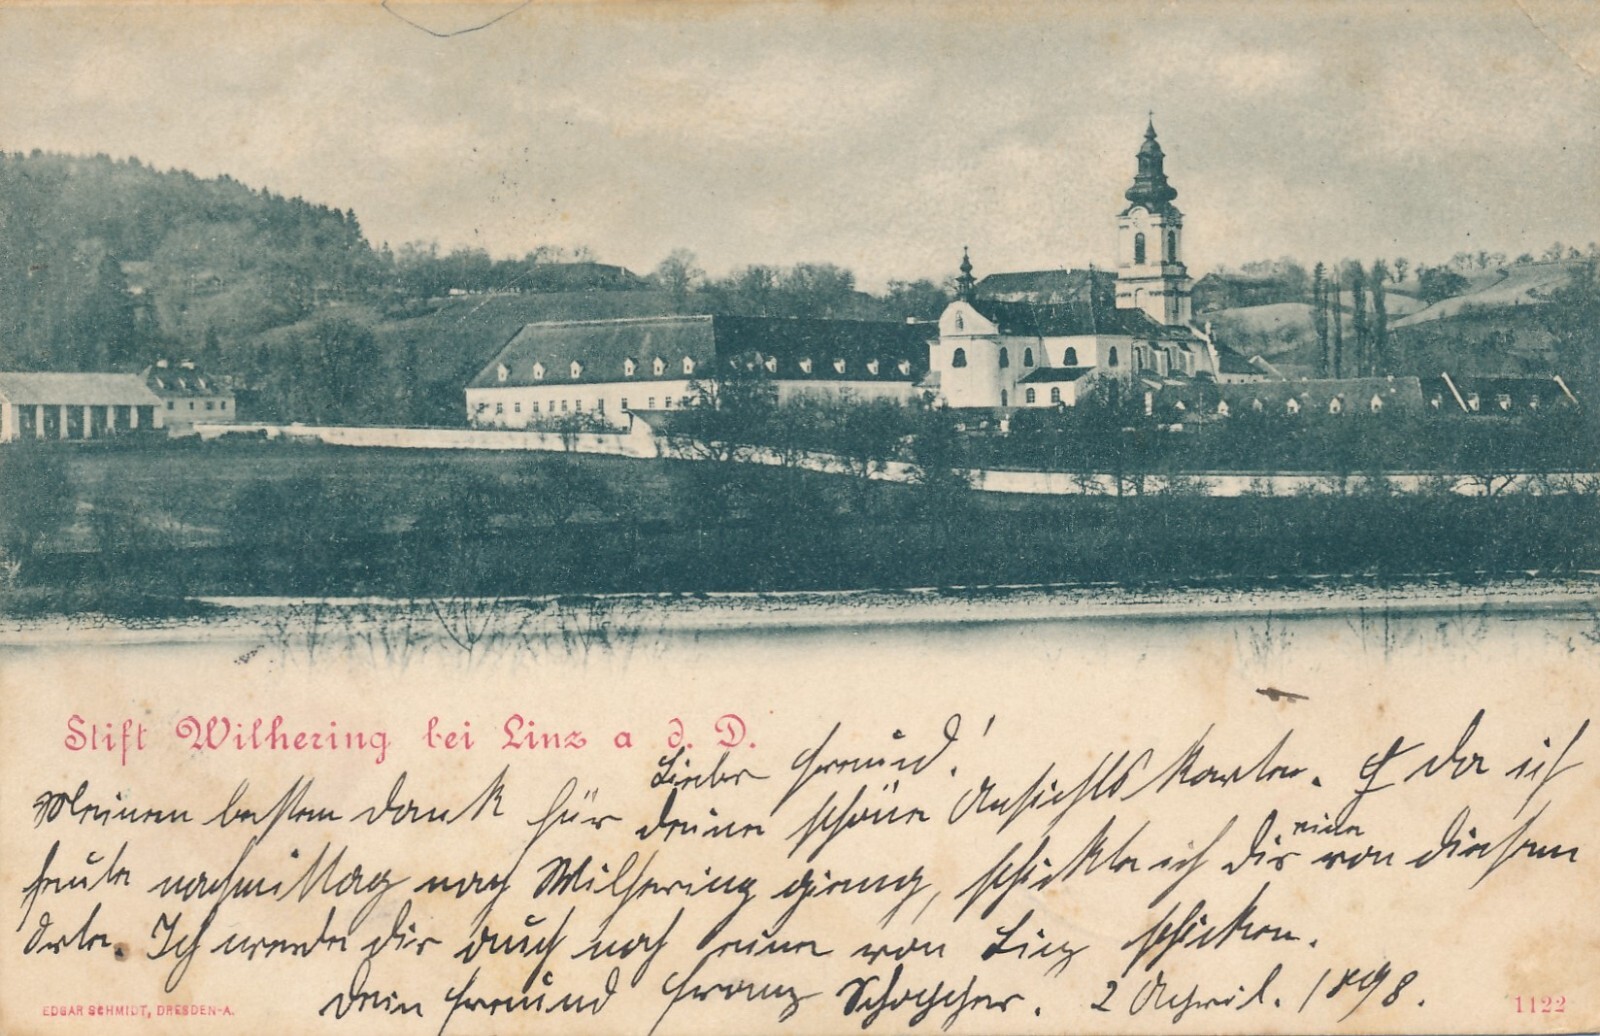 Stift Wilhering bei Linz a d. D.
Lieber Freund!
Meinen besten Dank für deine schöne Ansichts Karten. Da ich
heute nachmittag nach Wilhering gieng, schickte ich dir eine von diesem
Orte. Ich werde dir auch noch eine von Linz schicken.
Dein Freund Franz 2 April. 1898.
EDGAR SCHMIDT, DRESDEN-A.
1122